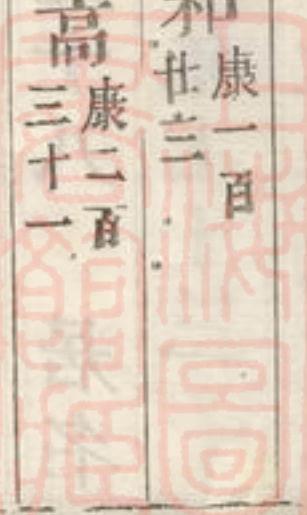 和 康一百
廿三
高 康二百
三十一